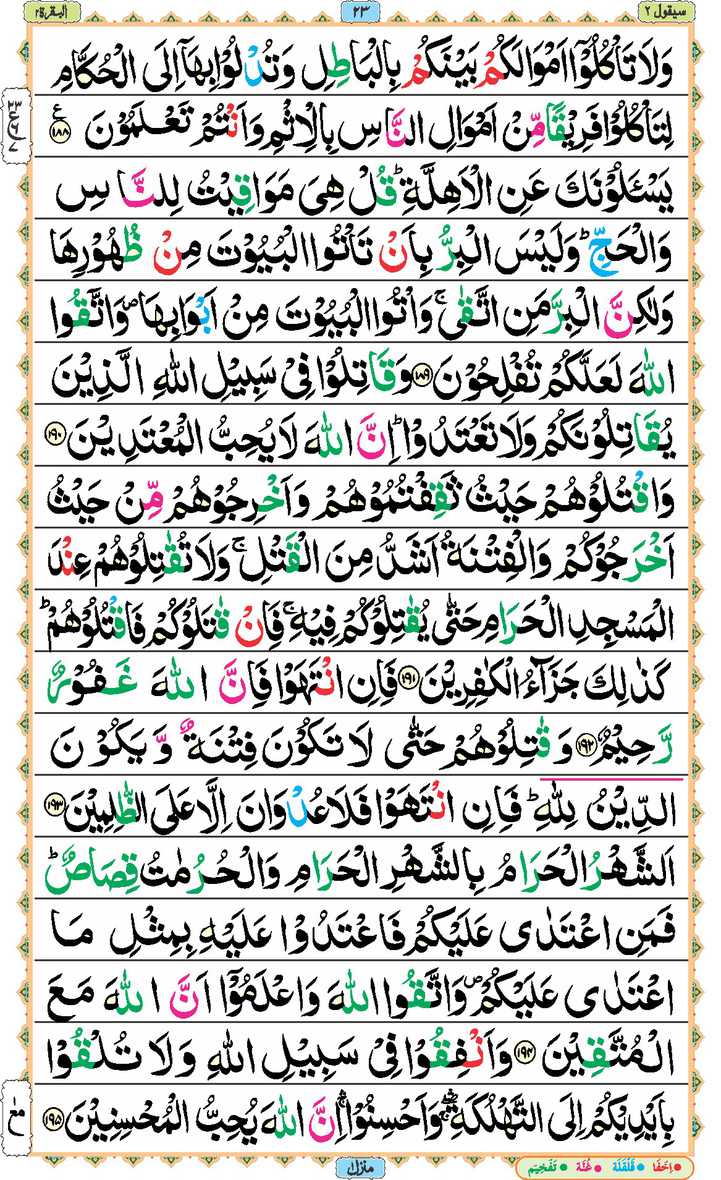 سيقول ٢ ٢٣ البقرة ٢
وَلَا تَاْكُلُوْٓا اَمْوَالَكُمْ بَيْنَكُمْ بِالْبَاطِلِ وَتُدْلُوْا بِهَآ اِلَى الْحُكَّامِ
لِتَاْكُلُوْا فَرِيْقًا مِّنْ اَمْوَالِ النَّاسِ بِالْاِثْمِ وَاَنْتُمْ تَعْلَمُوْنَ ۝۱۸۸ ع
يَسْـَٔلُوْنَكَ عَنِ الْاَهِلَّةِ ؕ قُلْ هِىَ مَوَاقِيْتُ لِلنَّاسِ
وَالْحَجِّ ؕ وَلَيْسَ الْبِرُّ بِاَنْ تَاْتُوا الْبُيُوْتَ مِنْ ظُهُوْرِهَا
وَلٰكِنَّ الْبِرَّ مَنِ اتَّقٰى ۚ وَاْتُوا الْبُيُوْتَ مِنْ اَبْوَابِهَا ۪ وَاتَّقُوا
اللّٰهَ لَعَلَّكُمْ تُفْلِحُوْنَ ۝۱۸۹ وَقَاتِلُوْا فِىْ سَبِيْلِ اللّٰهِ الَّذِيْنَ
يُقَاتِلُوْنَكُمْ وَلَا تَعْتَدُوْا ؕ اِنَّ اللّٰهَ لَا يُحِبُّ الْمُعْتَدِيْنَ ۝۱۹۰
وَاقْتُلُوْهُمْ حَيْثُ ثَقِفْتُمُوْهُمْ وَاَخْرِجُوْهُمْ مِّنْ حَيْثُ
اَخْرَجُوْكُمْ وَالْفِتْنَةُ اَشَدُّ مِنَ الْقَتْلِ ۚ وَلَا تُقٰتِلُوْهُمْ عِنْدَ
الْمَسْجِدِ الْحَرَامِ حَتّٰى يُقٰتِلُوْكُمْ فِيْهِ ۚ فَاِنْ قٰتَلُوْكُمْ فَاقْتُلُوْهُمْ ؕ
كَذٰلِكَ جَزَآءُ الْكٰفِرِيْنَ ۝۱۹۱ فَاِنِ انْتَهَوْا فَاِنَّ اللّٰهَ غَفُوْرٌ
رَّحِيْمٌ ۝۱۹۲ وَقٰتِلُوْهُمْ حَتّٰى لَا تَكُوْنَ فِتْنَةٌ وَّيَكُوْنَ
الدِّيْنُ لِلّٰهِ ؕ فَاِنِ انْتَهَوْا فَلَا عُدْوَانَ اِلَّا عَلَى الظّٰلِمِيْنَ ۝۱۹۳
اَلشَّهْرُ الْحَرَامُ بِالشَّهْرِ الْحَرَامِ وَالْحُرُمٰتُ قِصَاصٌ ؕ
فَمَنِ اعْتَدٰى عَلَيْكُمْ فَاعْتَدُوْا عَلَيْهِ بِمِثْلِ مَا
اعْتَدٰى عَلَيْكُمْ ۪ وَاتَّقُوا اللّٰهَ وَاعْلَمُوْٓا اَنَّ اللّٰهَ مَعَ
الْمُتَّقِيْنَ ۝۱۹۴ وَاَنْفِقُوْا فِىْ سَبِيْلِ اللّٰهِ وَلَا تُلْقُوْا
بِاَيْدِيْكُمْ اِلَى التَّهْلُكَةِ ۛ وَاَحْسِنُوْا ۛ اِنَّ اللّٰهَ يُحِبُّ الْمُحْسِنِيْنَ ۝۱۹۵
منزل ١ اِخفَا قَلقَلَة غُنّة تَفخِيم